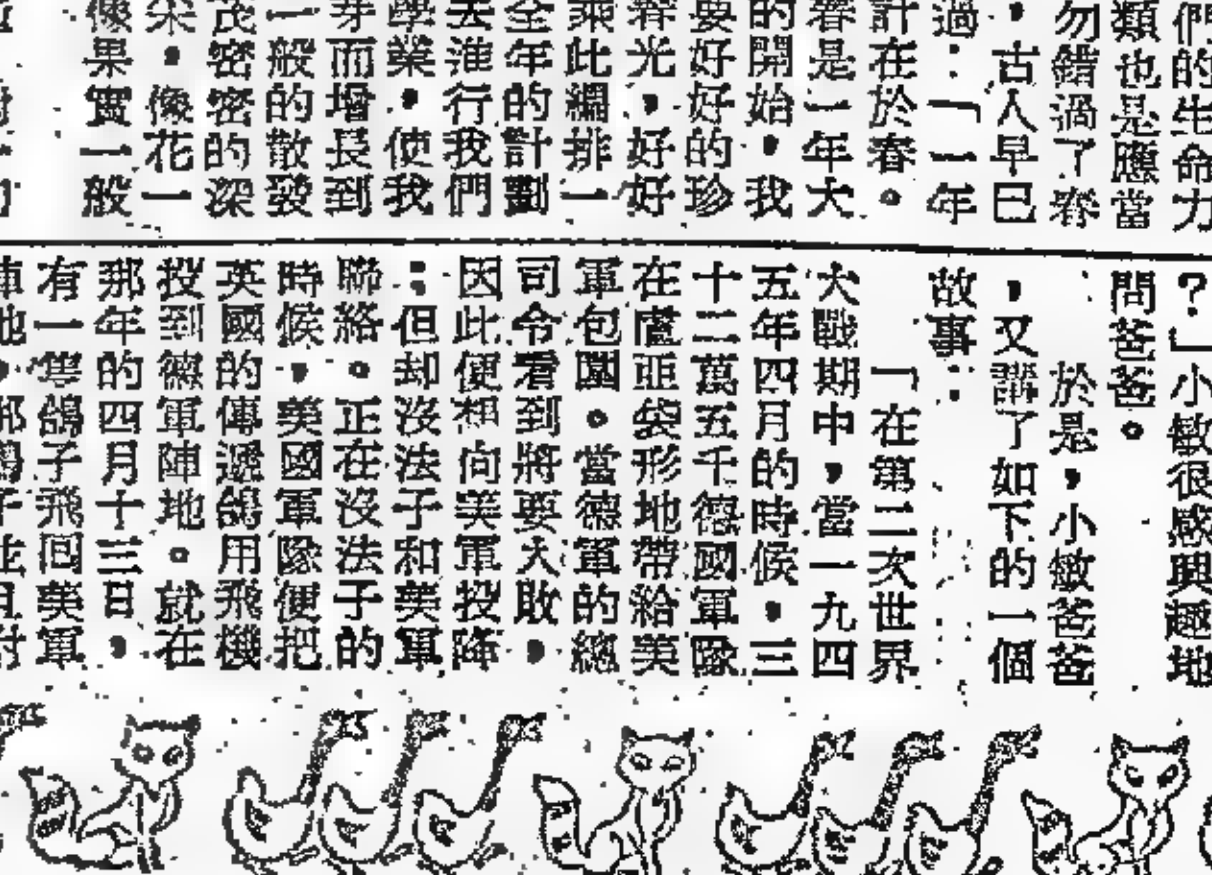 們的生命力
類也是應當
勿錯過了春
，古人早已
過：「一年
計在於春。
春是一年大
的開始，我
要好好的珍
春光，好好
乘此編排一
全年的計劃
去進行我們
學業，使我
芽而增長到
一般的散發
茂密密的深
尖，像花一
像果實一般
？」小敏很感興趣地
問爸爸。
於是，小敏爸爸
，又講了如下的一個
故事：
「在第二次世界
大戰期中，當一九四
五年四月的時候，三
十二萬五千德國軍隊
在盧亞袋形地帶給美
軍包圍。當德軍的總
司令看到將要大敗，
因此便想向美軍投降
；但却沒法子和美軍
聯絡。正在沒法子的
時候，美國軍隊便把
英國的傳遞鴿用飛機
投到德軍陣地。就在
那年的四月十三日，
有一隻鴿子飛回美軍